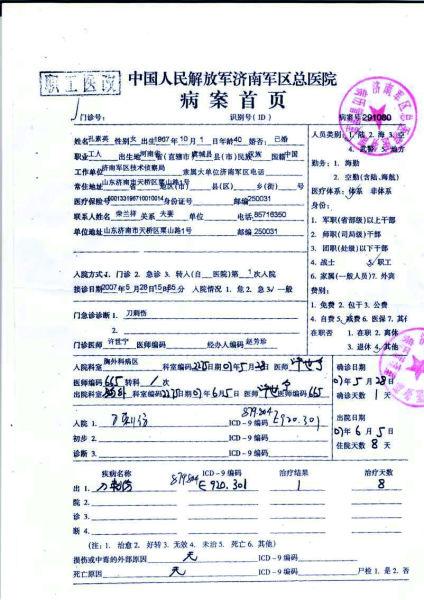 职工医改
中国人民解放军济南军区总医院
病案首页
门诊号: 识别号(ID) 病案号 291080
姓名 孔素英 性别 女 出生 1967年10月1日 年龄 40 婚否: 已婚
职业 工人 出生地 河南省(直辖市) 虞城县(市)民族 汉族 国籍 中国
工作单位 济南军区技术侦察局 隶属大单位 济南军区 电话
常住地址 山东济南市天桥区粟山路1号
医疗保险号 身份证号 邮编 250031
联系人姓名 荣兰祥 关系 夫妻 单位 电话 85716350
单位地址 山东济南市天桥区粟山路1号 邮编 250031
人员类别: 1. 陆 2. 海 3. 空
4. 武警 5. 地方
勤务: 1. 海勤
2. 空勤(含陆、海航)
医疗体系: 体系 非体系
身份:
1. 军职(省部级)以上干部
2. 师职(司局级)干部
3. 团职(处级)以下干部
4. 战士 5. 职工
6. 家属(一般人员) 7. 外宾
费别:
1. 免费 2. 包干 3. 公费
4. 自费 5. 减费 6. 医保 7. 其他
在职否 1. 在职 2. 离休
3. 退休 4. 其他
入院方式 1. 门诊 2. 急诊 3. 转入(自 医院)第 1 次入院
接诊日期 2007年5月28日 入院情况 1. 危 2. 急 3. 一般
门急诊诊断 1. 刀刺伤
2.
门诊医师 许世宁 医师编码 经办人编码 赵芳珍
入院科室 胸外科病区 科室编码 日期 07年5月28日 医师
医师编码 665 转科 1 次
出院科室 科室编码 日期 07年6月5日 医师 医师编码 665
确诊日期
07年5月28日
确诊天数 1 天
出院日期
07年6月5日
住院天数 8 天
入院 1. 刀刺伤 ICD-9编码 879.804 E920.301
初步 2. ICD-9编码
诊断 3. ICD-9编码
疾病名称 ICD-9编码 治疗结果 治疗天数
出 1. 刀刺伤 879.804 E920.301 1 8
院 2.
诊 3.
断 4.
(注: 1. 治愈 2. 好转 3. 无效 4. 未治 5. 死亡 6. 其他)
损伤或中毒的外部原因 无 ICD-9编码
死亡原因 无 ICD-9编码 尸检 1. 是 2. 否